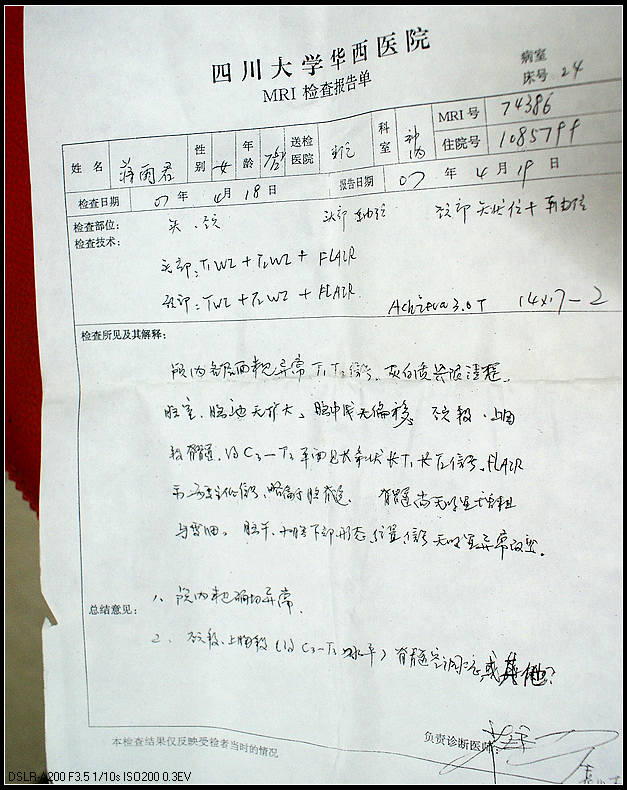 四川大学华西医院
病室
MRI 检查报告单
床号 24
MRI号 74386
姓名 蒋雨君 性别 女 年龄 送检医院 科室 住院号 1085799
检查日期 07 年 4 月 18 日 报告日期 07 年 4 月 19 日
检查部位: 头、颈 头部轴位 颈部矢状位+轴位
检查技术:
头部:T1WI + T2WI + FLAIR
颈部:T1WI + T2WI + FLAIR Achieva 3.0T 14×17-2
检查所见及其解释:
异常T1T2信号,灰白质界限清楚,
脑室、脑池无扩大,脑中线无偏移。颈段、上胸
段脊髓,约C3-T2平面见长条状长T1长T2信号,FLAIR
低信号,脊髓尚无明显增粗
脑干、小脑下部形态、位置、信号无明显异常改变。
总结意见: 1、颅内未见确切异常。
2、颈段、上胸段(约C3-T2水平)脊髓空洞症或其他?
负责诊断医师:
本检查结果仅反映受检者当时的情况
DSLR-A200 F3.5 1/10s ISO200 0.3EV